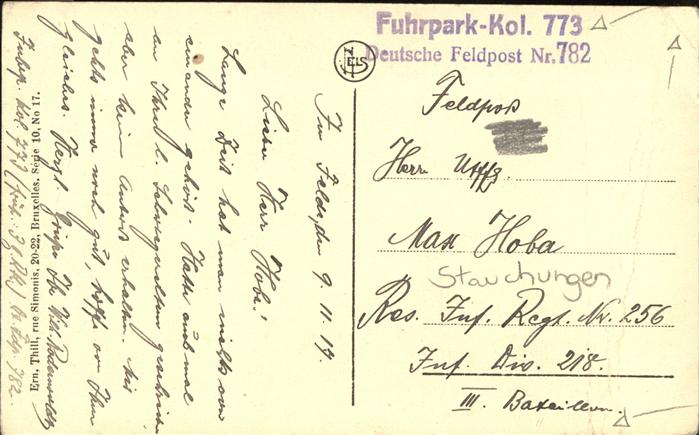 Fuhrpark-Kol. 773
Deutsche Feldpost Nr. 782
Feldpost
Herr Utffz.
Max Hoba
Stauchungen
Res. Inf. Regt. Nr. 256
Inf. Div. 218.
III. Bataillon.
Im Felde, den 9. 11. 17.
Lieber Herr Hoba!
Lange Zeit hat man nichts von
einander gehört. Hatte auch mal
an Ihre l. Schwiegereltern geschrieben
aber keine Antwort erhalten. Mir
gehts immer noch gut, hoffe von Ihnen
gleiches. Herzl. Grüße Ihr Willi
Fuhrp. Kol. 773
782
Ern. Thill, rue Simonis, 20-22, Bruxelles. Série 10. No 17.